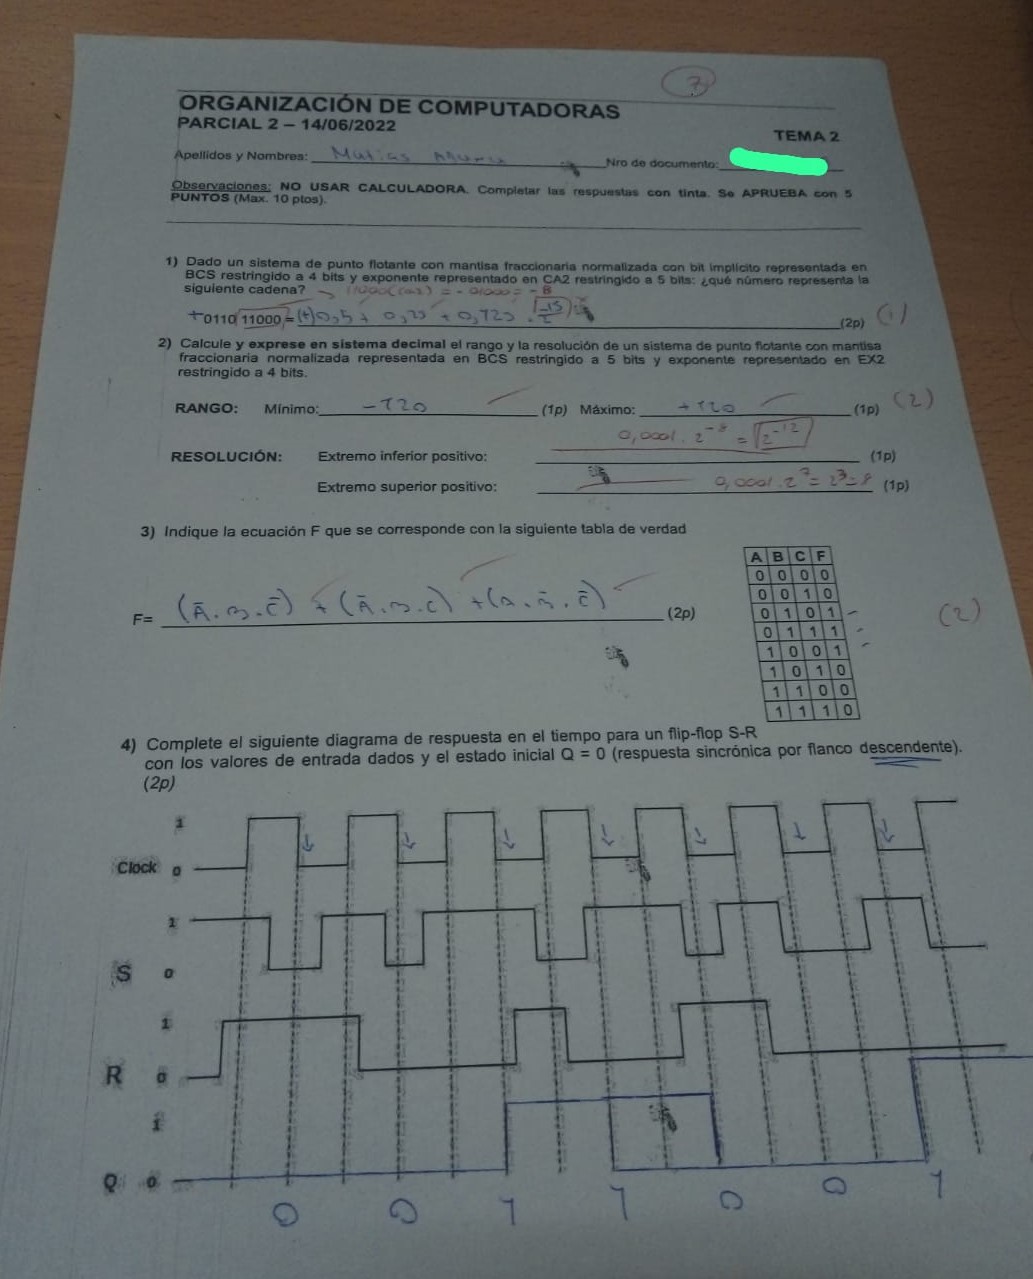 7
ORGANIZACIÓN DE COMPUTADORAS
PARCIAL 2 – 14/06/2022
TEMA 2
Apellidos y Nombres: Matias Nro de documento:
Observaciones: NO USAR CALCULADORA. Completar las respuestas con tinta. Se APRUEBA con 5
PUNTOS (Max. 10 ptos).
1) Dado un sistema de punto flotante con mantisa fraccionaria normalizada con bit implícito representada en
BCS restringido a 4 bits y exponente representado en CA2 restringido a 5 bits: ¿qué número representa la
siguiente cadena? → 11000(ca2) = -01000 = -8
+0110 11000 = (+) 0,5 + 0,25 + 0,125 . (2p) (1)
2) Calcule y exprese en sistema decimal el rango y la resolución de un sistema de punto flotante con mantisa
fraccionaria normalizada representada en BCS restringido a 5 bits y exponente representado en EX2
restringido a 4 bits.
RANGO: Mínimo: -120 (1p) Máximo: +120 (1p) (2)
0,0001 . 2⁻⁸ = 2⁻¹²
RESOLUCIÓN: Extremo inferior positivo: (1p)
Extremo superior positivo: 0,0001 . 2⁷ = 2³ = 8 (1p)
3) Indique la ecuación F que se corresponde con la siguiente tabla de verdad
F= (Ā.B.C̄) + (Ā.B.C) + (A.B̄.C̄) (2p) (2)
A B C F
0 0 0 0
0 0 1 0
0 1 0 1
0 1 1 1
1 0 0 1
1 0 1 0
1 1 0 0
1 1 1 0
4) Complete el siguiente diagrama de respuesta en el tiempo para un flip-flop S-R
con los valores de entrada dados y el estado inicial Q = 0 (respuesta sincrónica por flanco descendente).
(2p)
1
Clock 0
1
S 0
1
R 0
1
Q 0
0 0 1 1 0 0 1